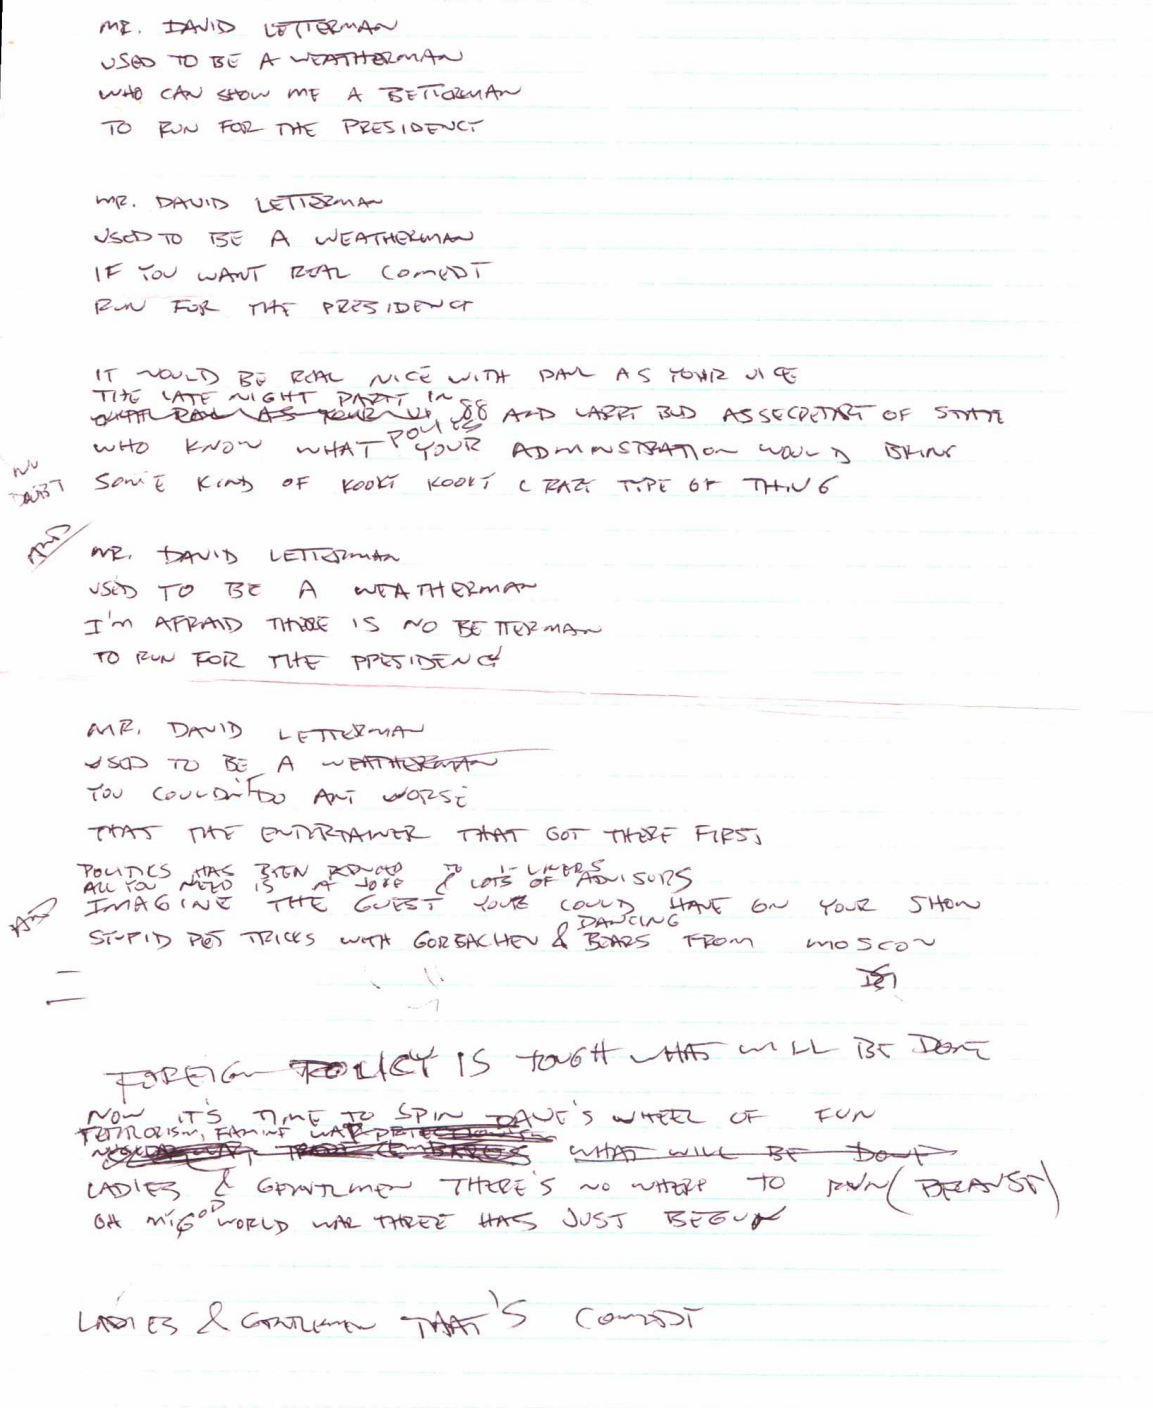 MR. DAVID LETTERMAN
USED TO BE A WEATHERMAN
WHO CAN SHOW ME A BETTERMAN
TO RUN FOR THE PRESIDENCY
MR. DAVID LETTERMAN
USED TO BE A WEATHERMAN
IF YOU WANT REAL COMEDY
RUN FOR THE PRESIDENCY
IT WOULD BE REAL NICE WITH PAUL AS YOUR VICE
THE LATE NIGHT PARTY IN 88 AND LARRY BUD AS SECRETARY OF STATE
WHO KNOW WHAT POLICIES YOUR ADMINSTRATION WOULD BRING
NO DOUBT SOME KIND OF KOOKY KOOKY CRAZY TYPE OF THING
AND
MR. DAVID LETTERMAN
USED TO BE A WEATHERMAN
I'M AFRAID THERE IS NO BETTERMAN
TO RUN FOR THE PRESIDENCY
MR. DAVID LETTERMAN
USED TO BE A WEATHERMAN
YOU COULDN'T DO ANY WORSE
THAT THE ENTERTAINER THAT GOT THERE FIRST
POLITICS HAS BEEN REDUCED TO 1-LINERS
ALL YOU NEED IS A JOKE & LOTS OF ADVISORS
AND IMAGINE THE GUEST YOUR COULD HAVE ON YOUR SHOW
STUPID PET TRICKS WITH GORBACHEV & DANCING BEARS FROM MOSCOW
FOREIGN POLICY IS TOUGH WHAT WILL BE DONE
NOW IT'S TIME TO SPIN DAVE'S WHEEL OF FUN
TERRORISM, FAMINE WAR
WHAT WILL BE DONE
LADIES & GENTLMEN THERE'S NO WHERE TO RUN (BECAUSE)
OH MY GOD WORLD WAR THREE HAS JUST BEGUN
LADIES & GENTLEMEN THAT'S COMEDY